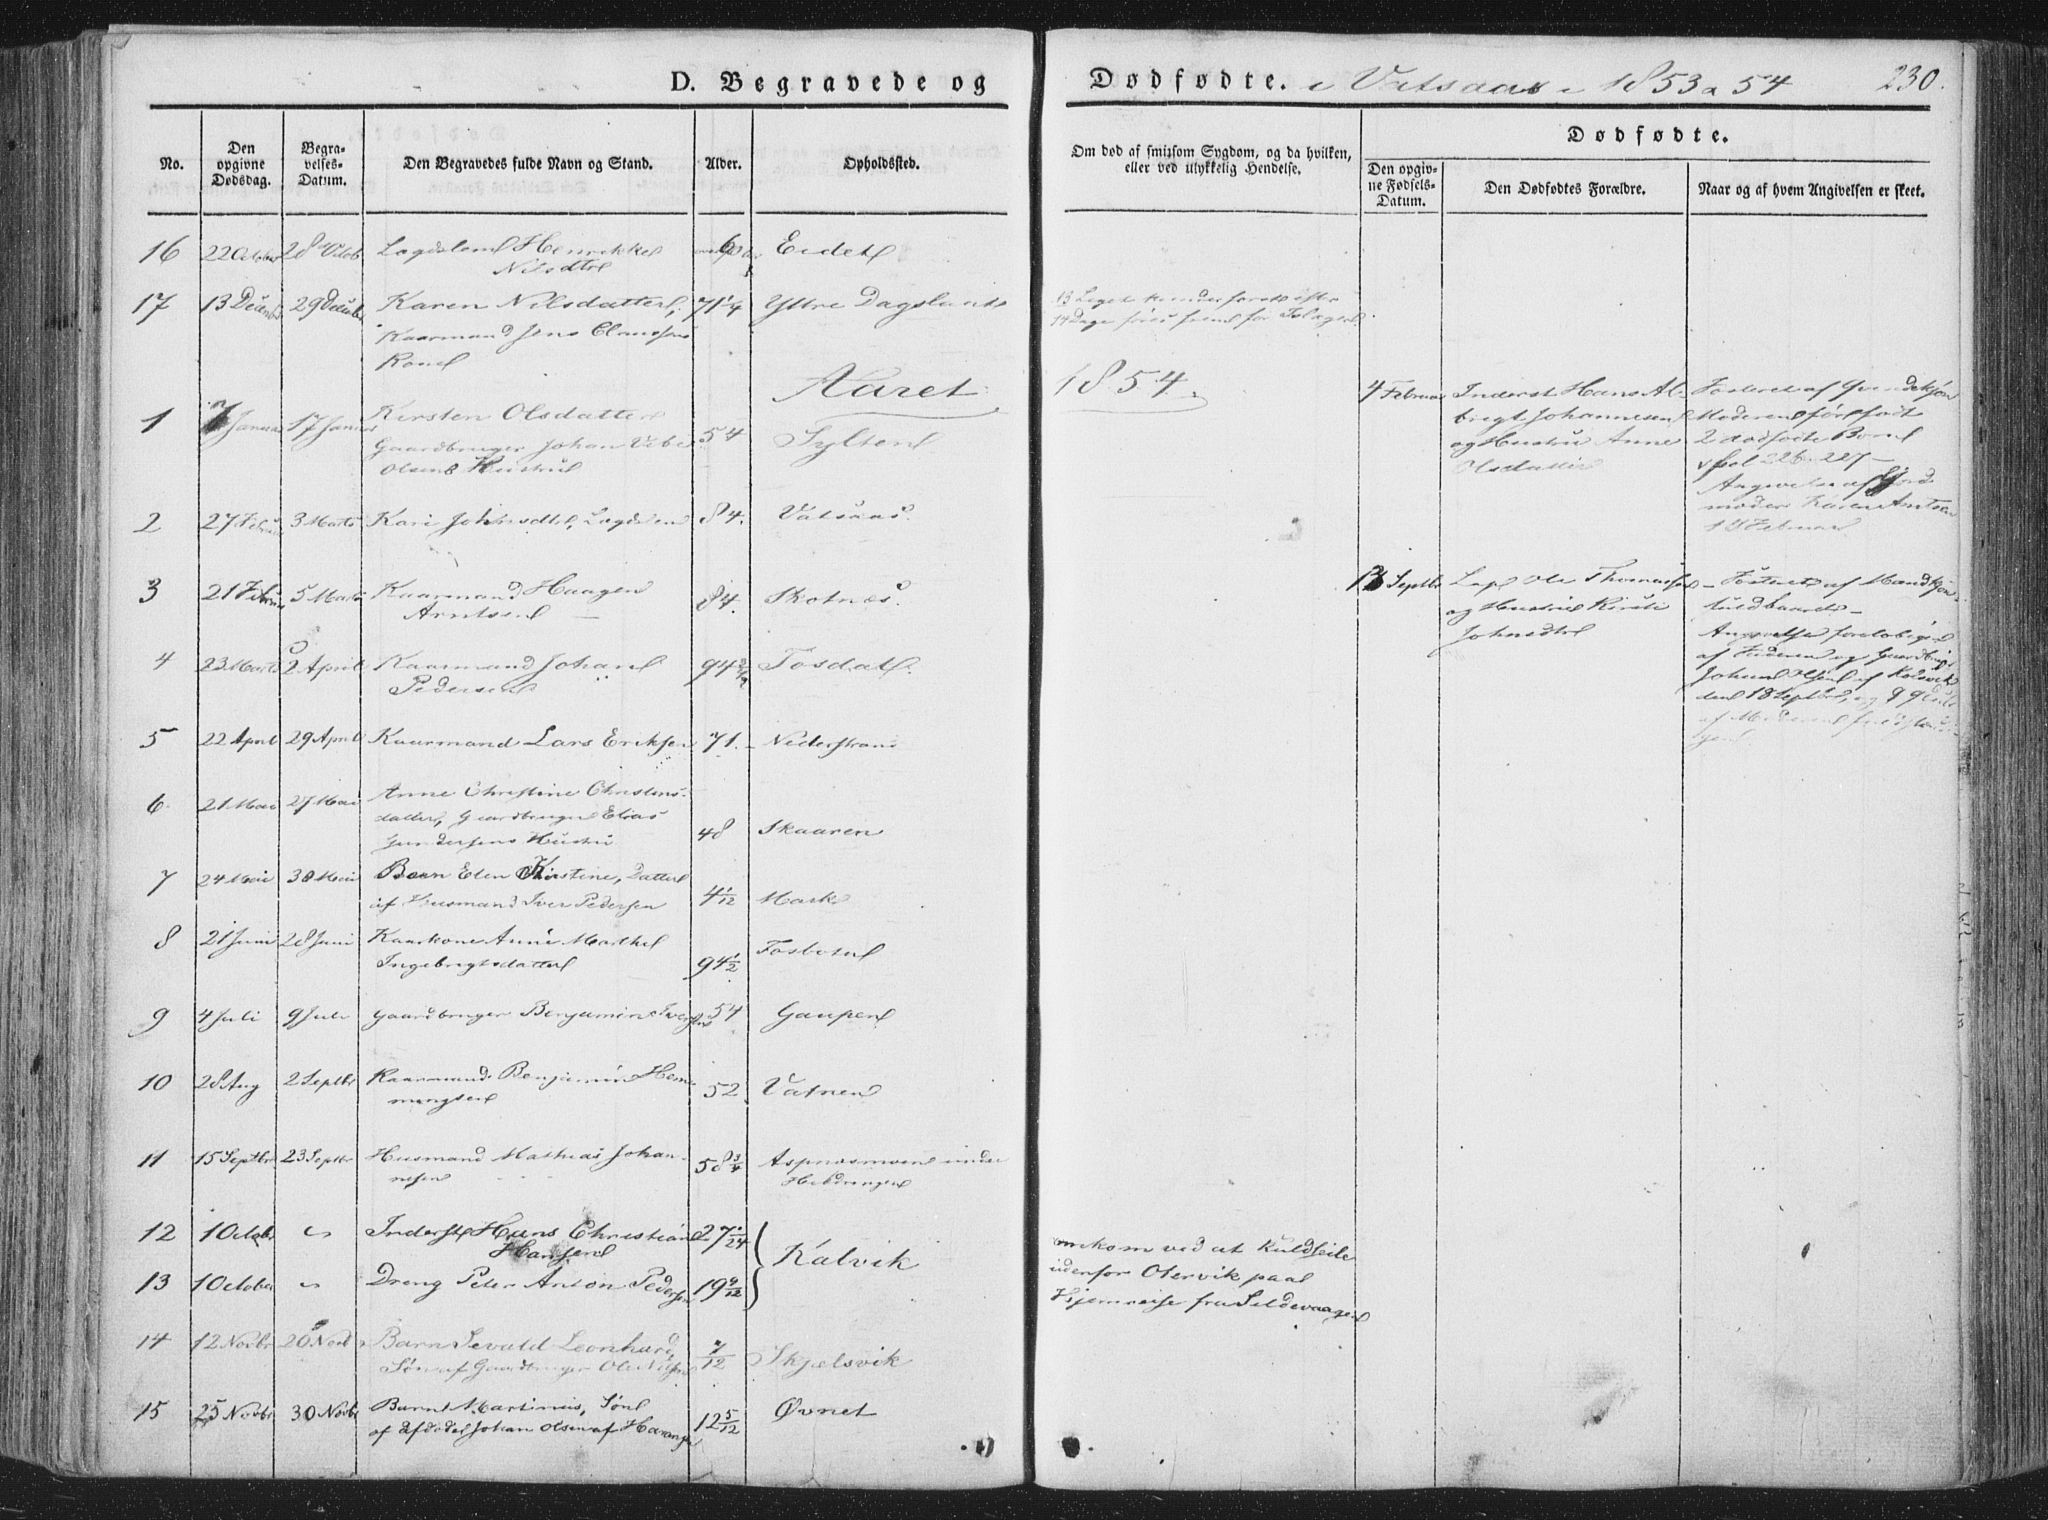 D. Begravede og Dødfødte. i Vatsaas i 1853 a 54 230.
No.
Den opgivne Dødsdag.
Begravelses-Datum.
Den Begravedes fulde Navn og Stand.
Alder.
Opholdssted.
Om død af smitsom Sygdom, og da hvilken,
eller ved ulykkelig Hendelse.
Dødfødte.
Den opgivne Fødsels-Datum.
Den Dødfødtes Forældre.
Naar og af hvem Angivelsen er skeet.
16 22 October 28 Octob Henrikke 6 Eidet
Nilsdtr
17 13 Decemb 29 Decembr Karen Nilsdatter, 71 1/4 Yttre Dagslaat
Kaarmand Jens Clausens
Kone
14 Dage
Aaret 1854.
1 7 Januar 17 Januar Kirsten Olsdatter 54 Sylten
Gaardbruger Johan
Olsens Hustru
4 Februar Inderst Hans Albrigt Johannesen
og Hustru Anne
Olsdatter
Fosteret af Qvindekjøn
Moderen før født
2 dødfødte Børn
Fol 226. 227 -
Angivelse af Jordmoder Karen Arntsen
18 Februar
2 27 Februar 3 Marts Kari Johnsdtr, Lægdslem 84. Vatsaas.
3 21 Februar 5 Marts Kaarmand Haagen 84. Skotnæs.
Arntsen
13 Septbr Lap Ole Thomassen
og Hustrue Kirsti
Johnsdtr
Fosteret af Mandkjøn
fuldbaaret
Angivelse foreløbigen
af Faderen og Gaardbrug
Johan Olsen af Kolsvik
den 18 Septbr, og
af Moderen
4 23 Marts 2 April Kaarmand Johan 94 Fosdal.
Pedersen
5 22 April 29 April Kaarmand Lars Eriksen 71. Nederstrand
6 21 Mai 27 Mai Anne Christine Christensdatter, Gaardbruger Elias 48 Skaaren
Gundersens Hustru
7 24 Mai 30 Mai Barn Elen Kirstine, Datter 4 1/12 Mark
af Husmand Iver Pedersen
8 21 Juni 28 Juni Kaarkone Anne Marthe 94 1/2
Ingebrigtsdatter
9 4 Juli 9 Juli Gaardbruger Benjamin Iversen 54 Gaupen
10 28 Aug 2 Septbr Kaarmand Benjamin Hemmingsen 52 Vatnen
11 15 Septbr 23 Septbr Husmand Mathias Johannesen 58 3/4 Aspnæsmoen under
12 1 Octobr Inderst Hans Christian 27
Hansen
Kalvik
13 1 October Dreng Peter Anton Pedersen 19
omkom ved at kuldseile
udenfor Otervik paa
Hjemreise fra Sildevaagen
14 12 Novbr 26 Novb Barn Sevald Leonhard, 7/12 Skjelsvik
Søn af Gaardbruger Ole Nilsen
15 25 Novbr 30 Novbr Barn Martinus, Søn 12 5/12 Øvnet
af afdøde Johan Olsen af